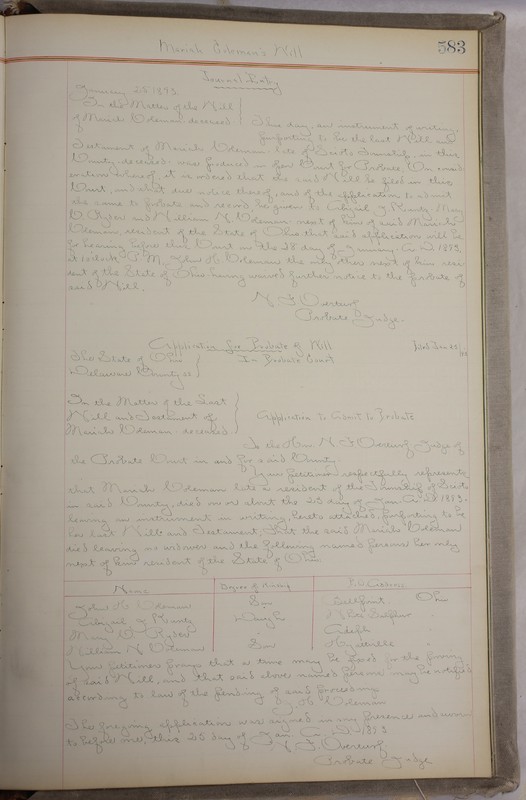 Mariah Coleman's Will
583
Journal Entry
January 25 1893
In the Matter of the Will
of Mariah Coleman deceased
This day, an instrument of writing,
purporting to be the last Will and
Testament of Mariah Coleman late of Scioto Township, in this
County, deceased was produced in open Court for Probate. On consid
eration thereof, it is ordered that the said Will be filed in this
Court, and that due notice thereof, and of the application to admit
the same to probate and record be given to Abigail J. Mary
C. Ryder and William N. Coleman next of kin of said Mariah
Coleman, resident of the State of Ohio that said application will be
for hearing before this Court on the 28 day of January, A.D. 1893,
at o'clock P.M. John H. Coleman the only other next of kin resi
dent of the State of Ohio having waived further notice to the probate of
said Will.
N. F. Overturf
Probate Judge.
Application for Probate of Will
The State of Ohio
Delaware County ss
In Probate Court
In the Matter of the Last
Will and Testament of
Mariah Coleman deceased
Application to Admit to Probate
To the Hon. N. F. Overturf Judge of
the Probate Court in and for said County:
Your petitioner respectfully represents
that Mariah Coleman late a resident of the Township of Scioto
in said County, died on or about the 23 day of Jan. A.D. 1893.
leaving an instrument in writing, hereto attached, purporting to be
her last Will and Testament, that the said Mariah Coleman
died leaving no widower and the following named persons her only
next of kin resident of the State of Ohio
Name Degree of Kinship P.O. Address
John H. Coleman Son Ohio
Abigail J. Daugh White Sulphur
Mary C. Ryder
William N. Coleman Son Hyattville
Your petitioner prays that a time may be fixed for the proving
of said Will, and that said above named persons may be notified
according to law of the pending of said proceedings
J. H. Coleman
The foregoing application was signed in my presence and sworn
to before me, this 25 day of Jan. A.D. 1893
N. F. Overturf
Probate Judge